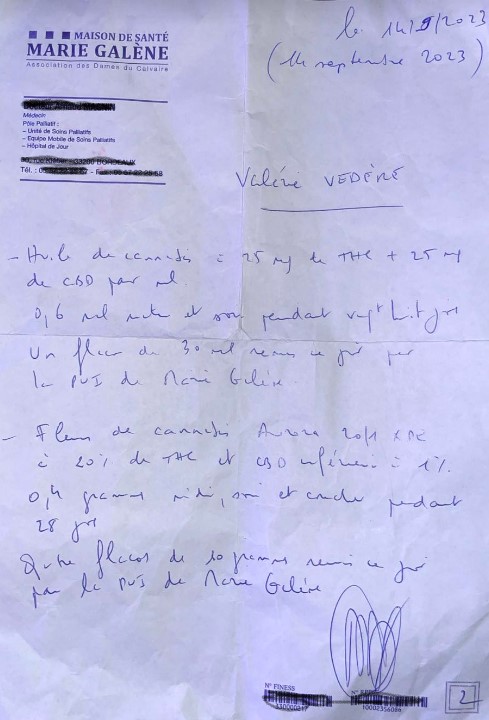 MAISON DE SANTÉ
MARIE GALÈNE
Association des Dames du Calvaire
le 14/9/2023
(14 septembre 2023)
Médecin
Pôle Palliatif :
– Unité de Soins Palliatifs
– Equipe Mobile de Soins Palliatifs
– Hôpital de Jour
BORDEAUX
Tél. :
Valérie VEDÈRE
– Huile de cannabis à 25 mg de THC + 25 mg
de CBD par ml
0,6 ml matin et soir pendant vingt huit jrs
Un flacon de 30 ml remis ce jr par
la PUI de Marie Galène
– Fleurs de cannabis Aurora 20/1
à 20% de THC et CBD inférieur à 1%.
0,4 grammes midi, soir et coucher pendant
28 jrs
Quatre flacons de 10 grammes remis ce jr
par la PUI de Marie Galène
N° FINESS
2